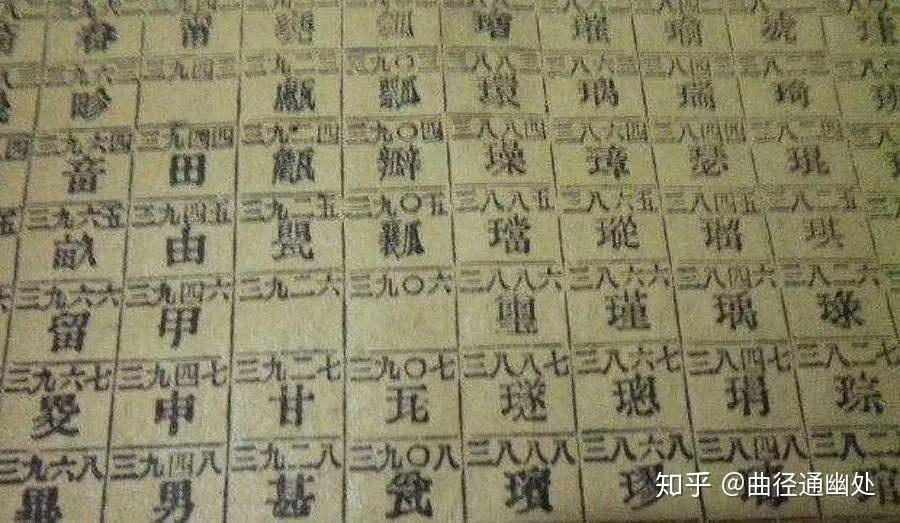 琥
三九六三 三九四三 三九二三 三九〇三 三八八三 三八六三 三八四三 三八二三
畛 甗 瓢 環 瑞 琦
三九六四 三九四四 三九二四 三九〇四 三八八四 三八六四 三八四四 三八二四
畜 田 瓣 璪 璋 瑟 琨
三九六五 三九四五 三九二五 三九〇五 三八八五 三八六五 三八四五 三八二五
畝 由 瓤 璫 瑽 琪
三九六六 三九四六 三九二六 三九〇六 三八八六 三八六六 三八四六 三八二六
留 甲 瑾 瑀
三九六七 三九四七 三九二七 三九〇七 三八八七 三八六七 三八四七 三八二七
畟 申 甘 瓦 璲 璁 瑁 琮
三九六八 三九四八 三九二八 三九〇八 三八八八 三八六八 三八四八 三八二
畢 男 甚 瓮
知乎 @曲径通幽处